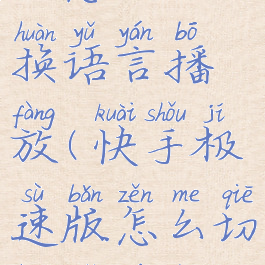 huàn yǔ yán bō
换语言播
fàng kuài shǒu jí
放(快手极
sù bǎn zěn me qiē
速版怎么切